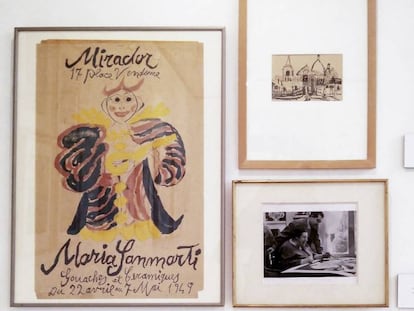 Mirador
17 place Vendome
Maria Sanmarti
Gouaches et Ceramiques
Du 22 avril au 7 Mai 1949